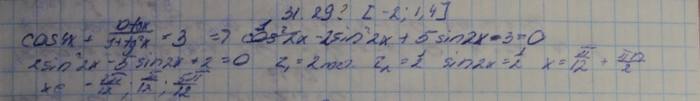 31.29? [-2; 1,4]
cos4x + 10tgx/1+tg²x = 3 => cos²2x - 2sin²2x + 5sin2x - 3 = 0
2sin²2x - 5sin2x + 2 = 0 z₁ = 2 z₂ = 1/2 sin2x = 1/2 x = π/12 + πn/2
x ∈ π/12; 5π/12